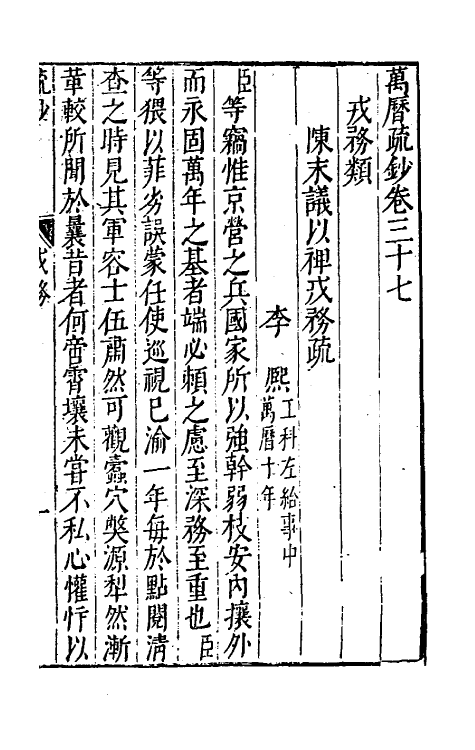 萬曆疏鈔卷三十七
戎務類
陳末議以裨戎務疏
李熙 工科左給事中
萬曆十年
臣等竊惟京營之兵國家所以強幹弱枝安內攘外
而永固萬年之基者端必頼之慮至深務至重也臣
等猥以菲劣誤蒙任使巡視已渝一年每於點閱清
查之時見其軍容士伍肅然可觀蠹穴獘源犁然漸
革較所聞於曩昔者何啻霄壤未嘗不私心懽忻以
疏鈔
戎務
一